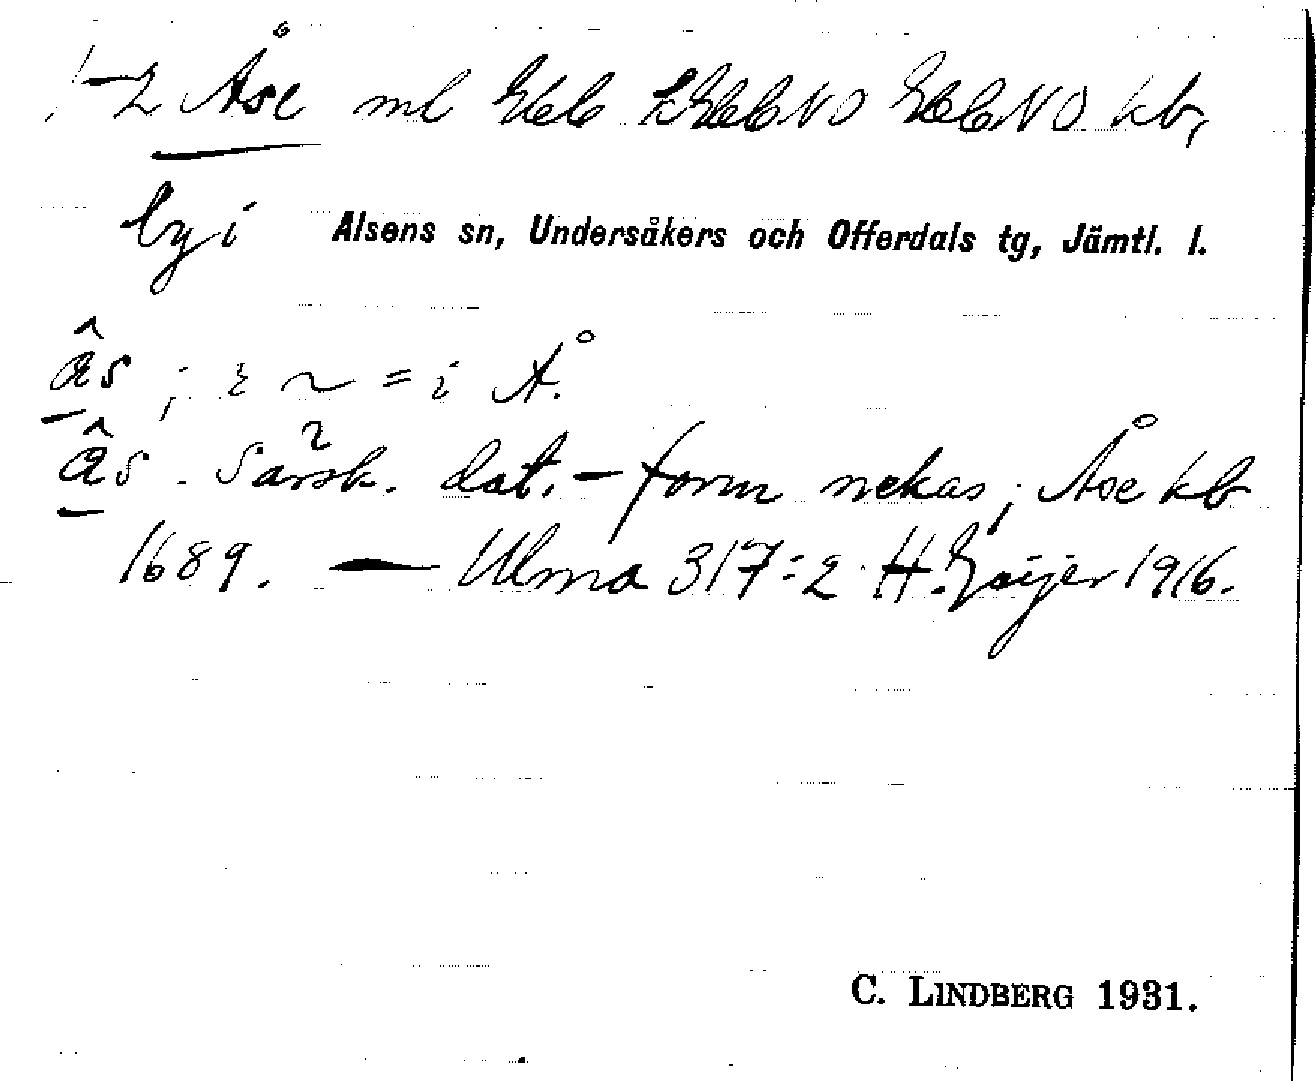 1-2 Åse ml Geb kGebNO GebNO kb,
by i Alsens sn, Undersåkers och Offerdals tg, Jämtl. l.
âs ; i ~ = i Å.
âs. Särsk. dat.-form nekas; Åse kb
1689. — Ulma 317:2 H. Geijer 1916.
C. LINDBERG 1931.